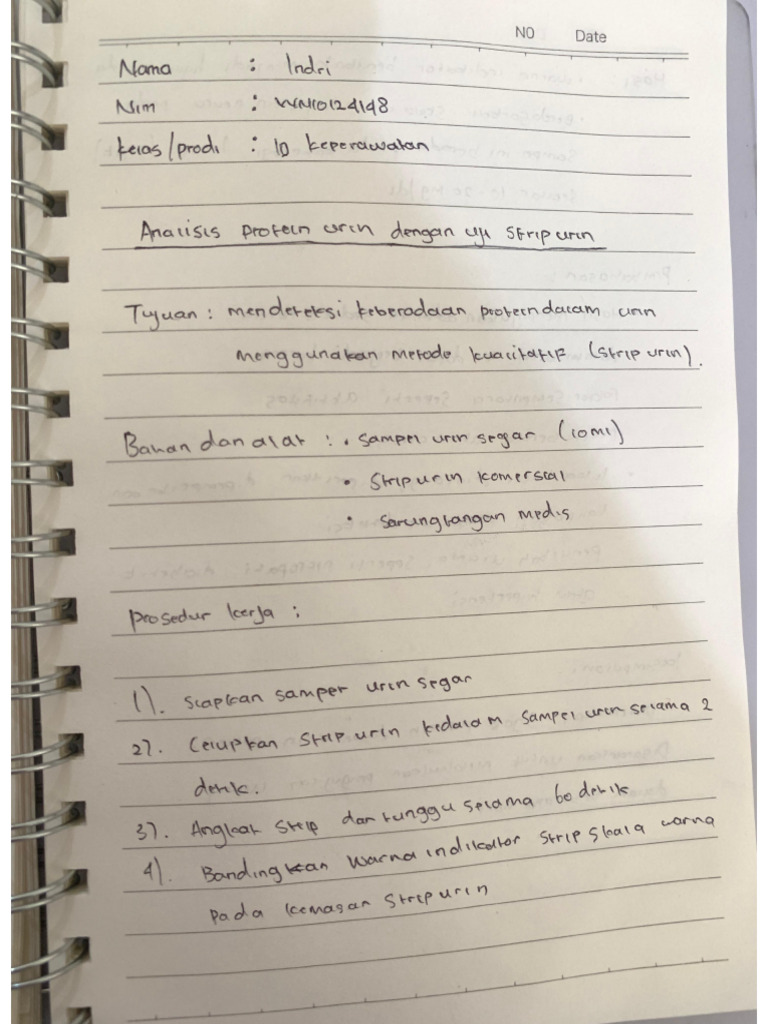 NO Date
Nama : Indri
Nim : WN10124148
Kelas/prodi : 1D keperawatan
Analisis protein urin dengan uji strip urin
Tujuan : mendeteksi keberadaan protein dalam urin
menggunakan metode kualitatif (strip urin).
Bahan dan alat : • sampel urin segar (10 ml)
• Strip urin komersial
• sarung tangan medis
prosedur kerja :
1). siapkan sampel urin segar
2). Celupkan strip urin kedalam sampel urin selama 2
detik.
3). Angkat strip dan tunggu selama 60 detik
4). Bandingkan warna indikator strip skala warna
pada kemasan strip urin